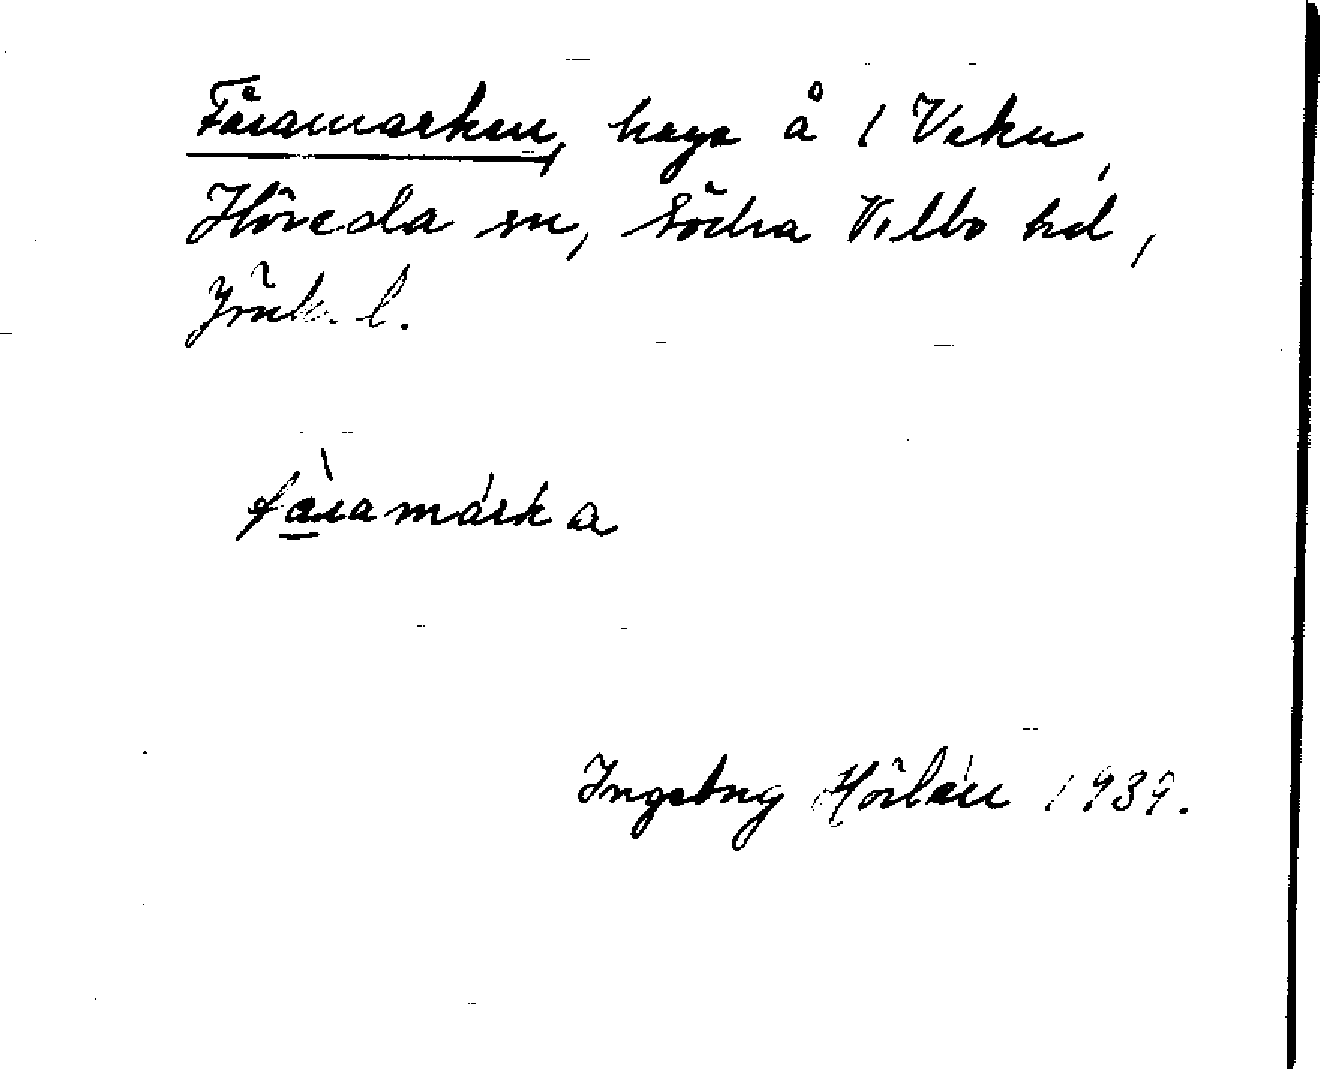 Fåramarken, hage å 1 Veku,
Höreda sn, Södra Vedbo hd,
Jönk. l.
fàramárka
Ingeborg Hörlén 1939.